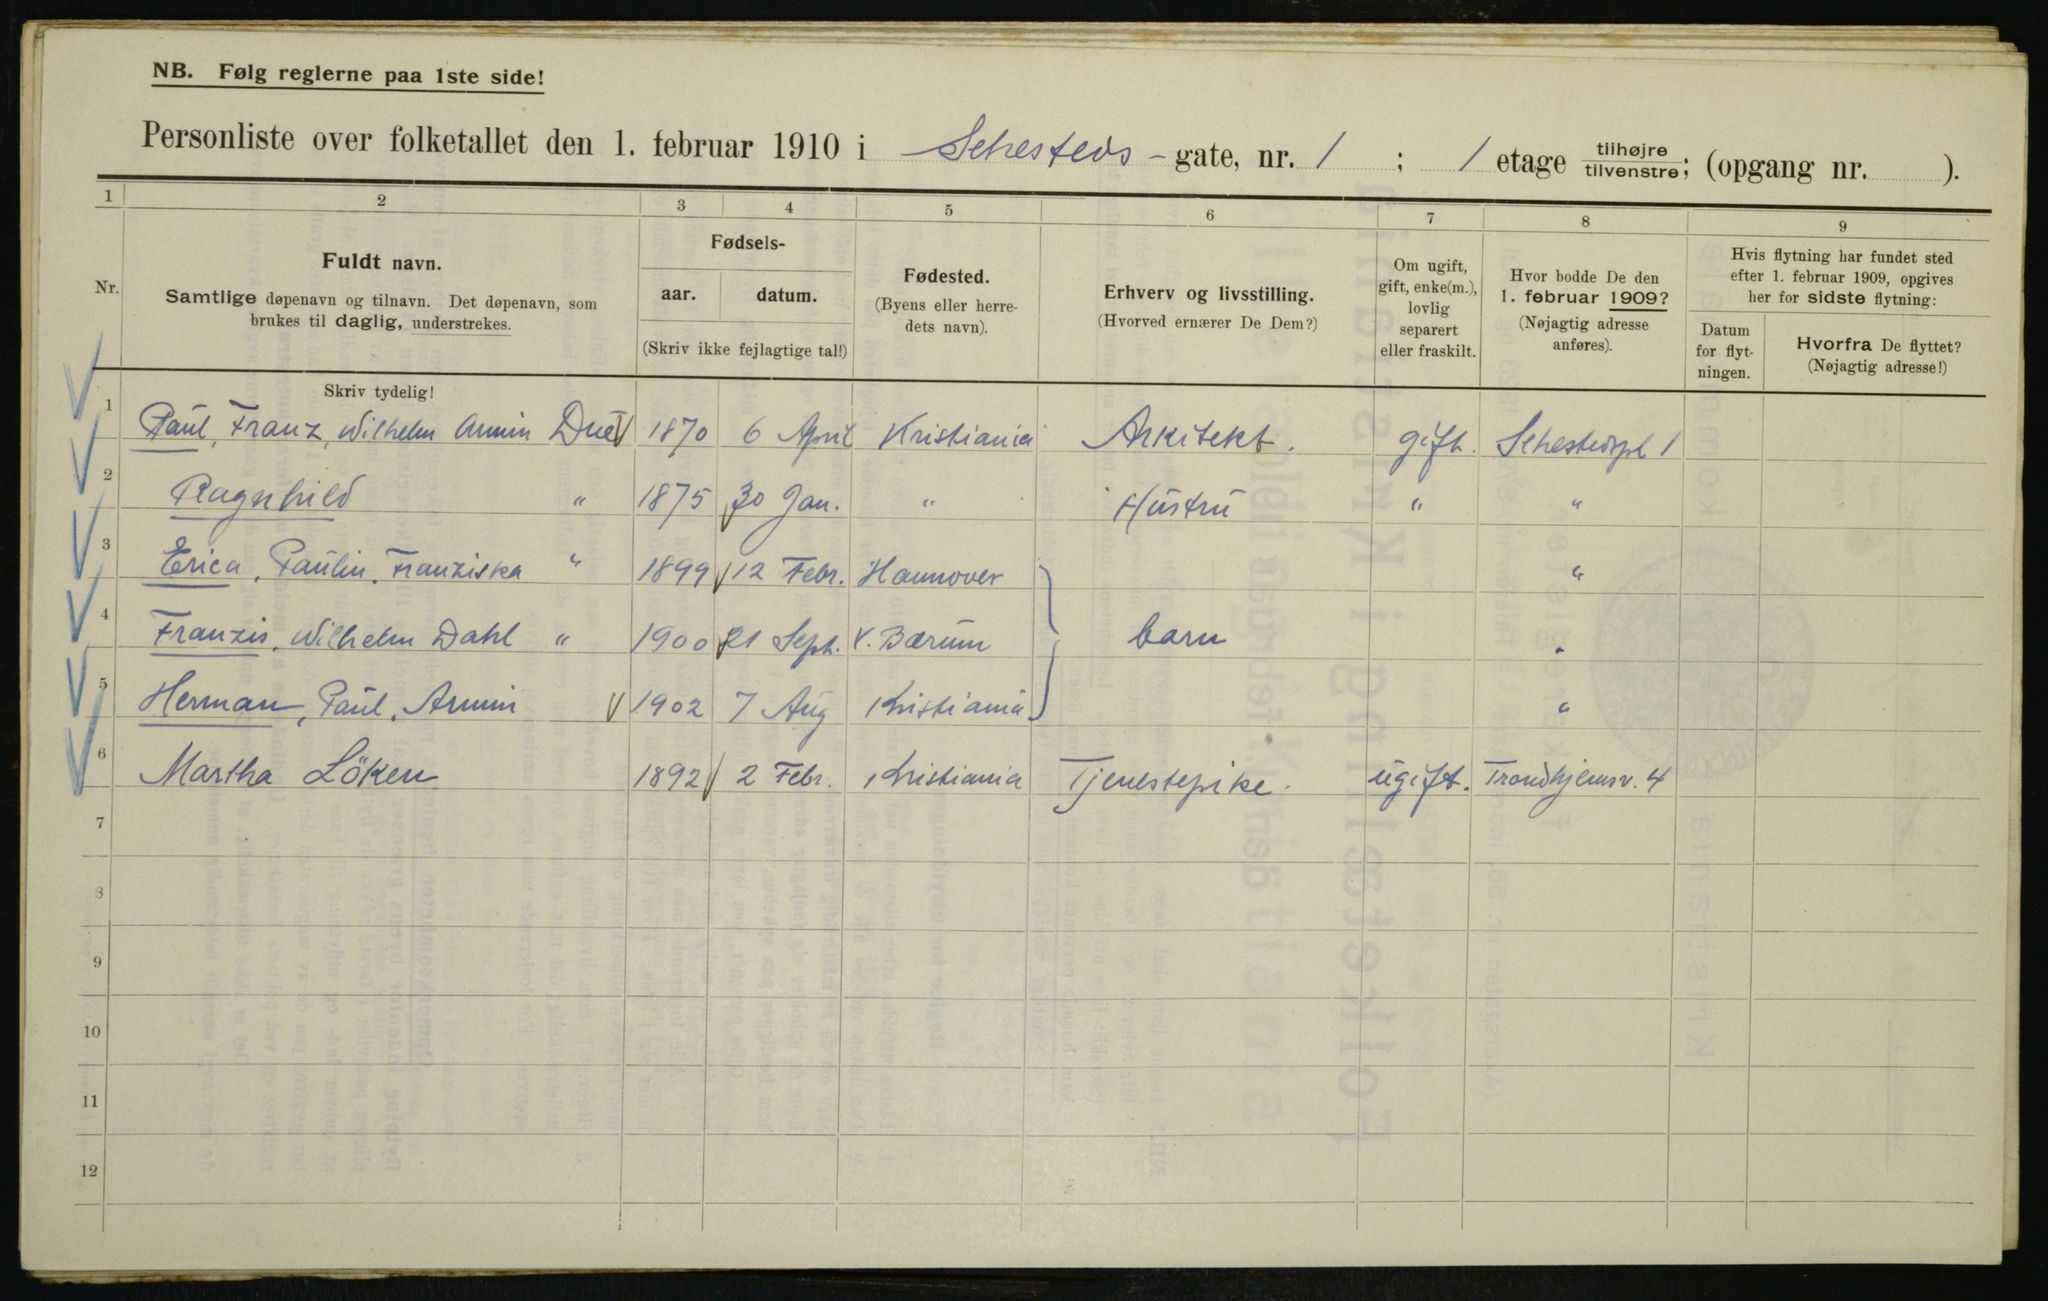 NB. Følg reglerne paa 1ste side!
Personliste over folketallet den 1. februar 1910 i Sehesteds-gate, nr. 1 ; 1 etage tilhøjre tilvenstre; (opgang nr. ).
1 2 3 4 5 6 7 8 9
Nr.
Fuldt navn.
Samtlige døpenavn og tilnavn. Det døpenavn, som
brukes til daglig, understrekes.
Fødsels-
aar. datum.
(Skriv ikke fejlagtige tal!)
Fødested.
(Byens eller herre-
dets navn).
Erhverv og livsstilling.
(Hvorved ernærer De Dem?)
Om ugift,
gift, enke(m.),
lovlig
separert
eller fraskilt.
Hvor bodde De den
1. februar 1909?
(Nøjagtig adresse
anføres).
Hvis flytning har fundet sted
efter 1. februar 1909, opgives
her for sidste flytning:
Datum
for flyt-
ningen.
Hvorfra De flyttet?
(Nøjagtig adresse!)
Skriv tydelig!
1 Paul, Franz, Wilhelm Armin Due 1870 6 April Kristiania Arkitekt. gift. Sehestedspl 1
2 Ragnhild " 1875 30 Jan. " Hustru " "
3 Erica, Paulin, Franziska " 1899 12 Febr. Hannover "
4 Franzis, Wilhelm Dahl " 1900 21 Sept. V. Bærum barn "
5 Herman, Paul, Armin 1902 7 Aug Kristiania "
6 Martha Löken 1892 2 Febr. Kristiania Tjenestepike. ugift. Trondhjemsv. 4
7
8
9
10
11
12